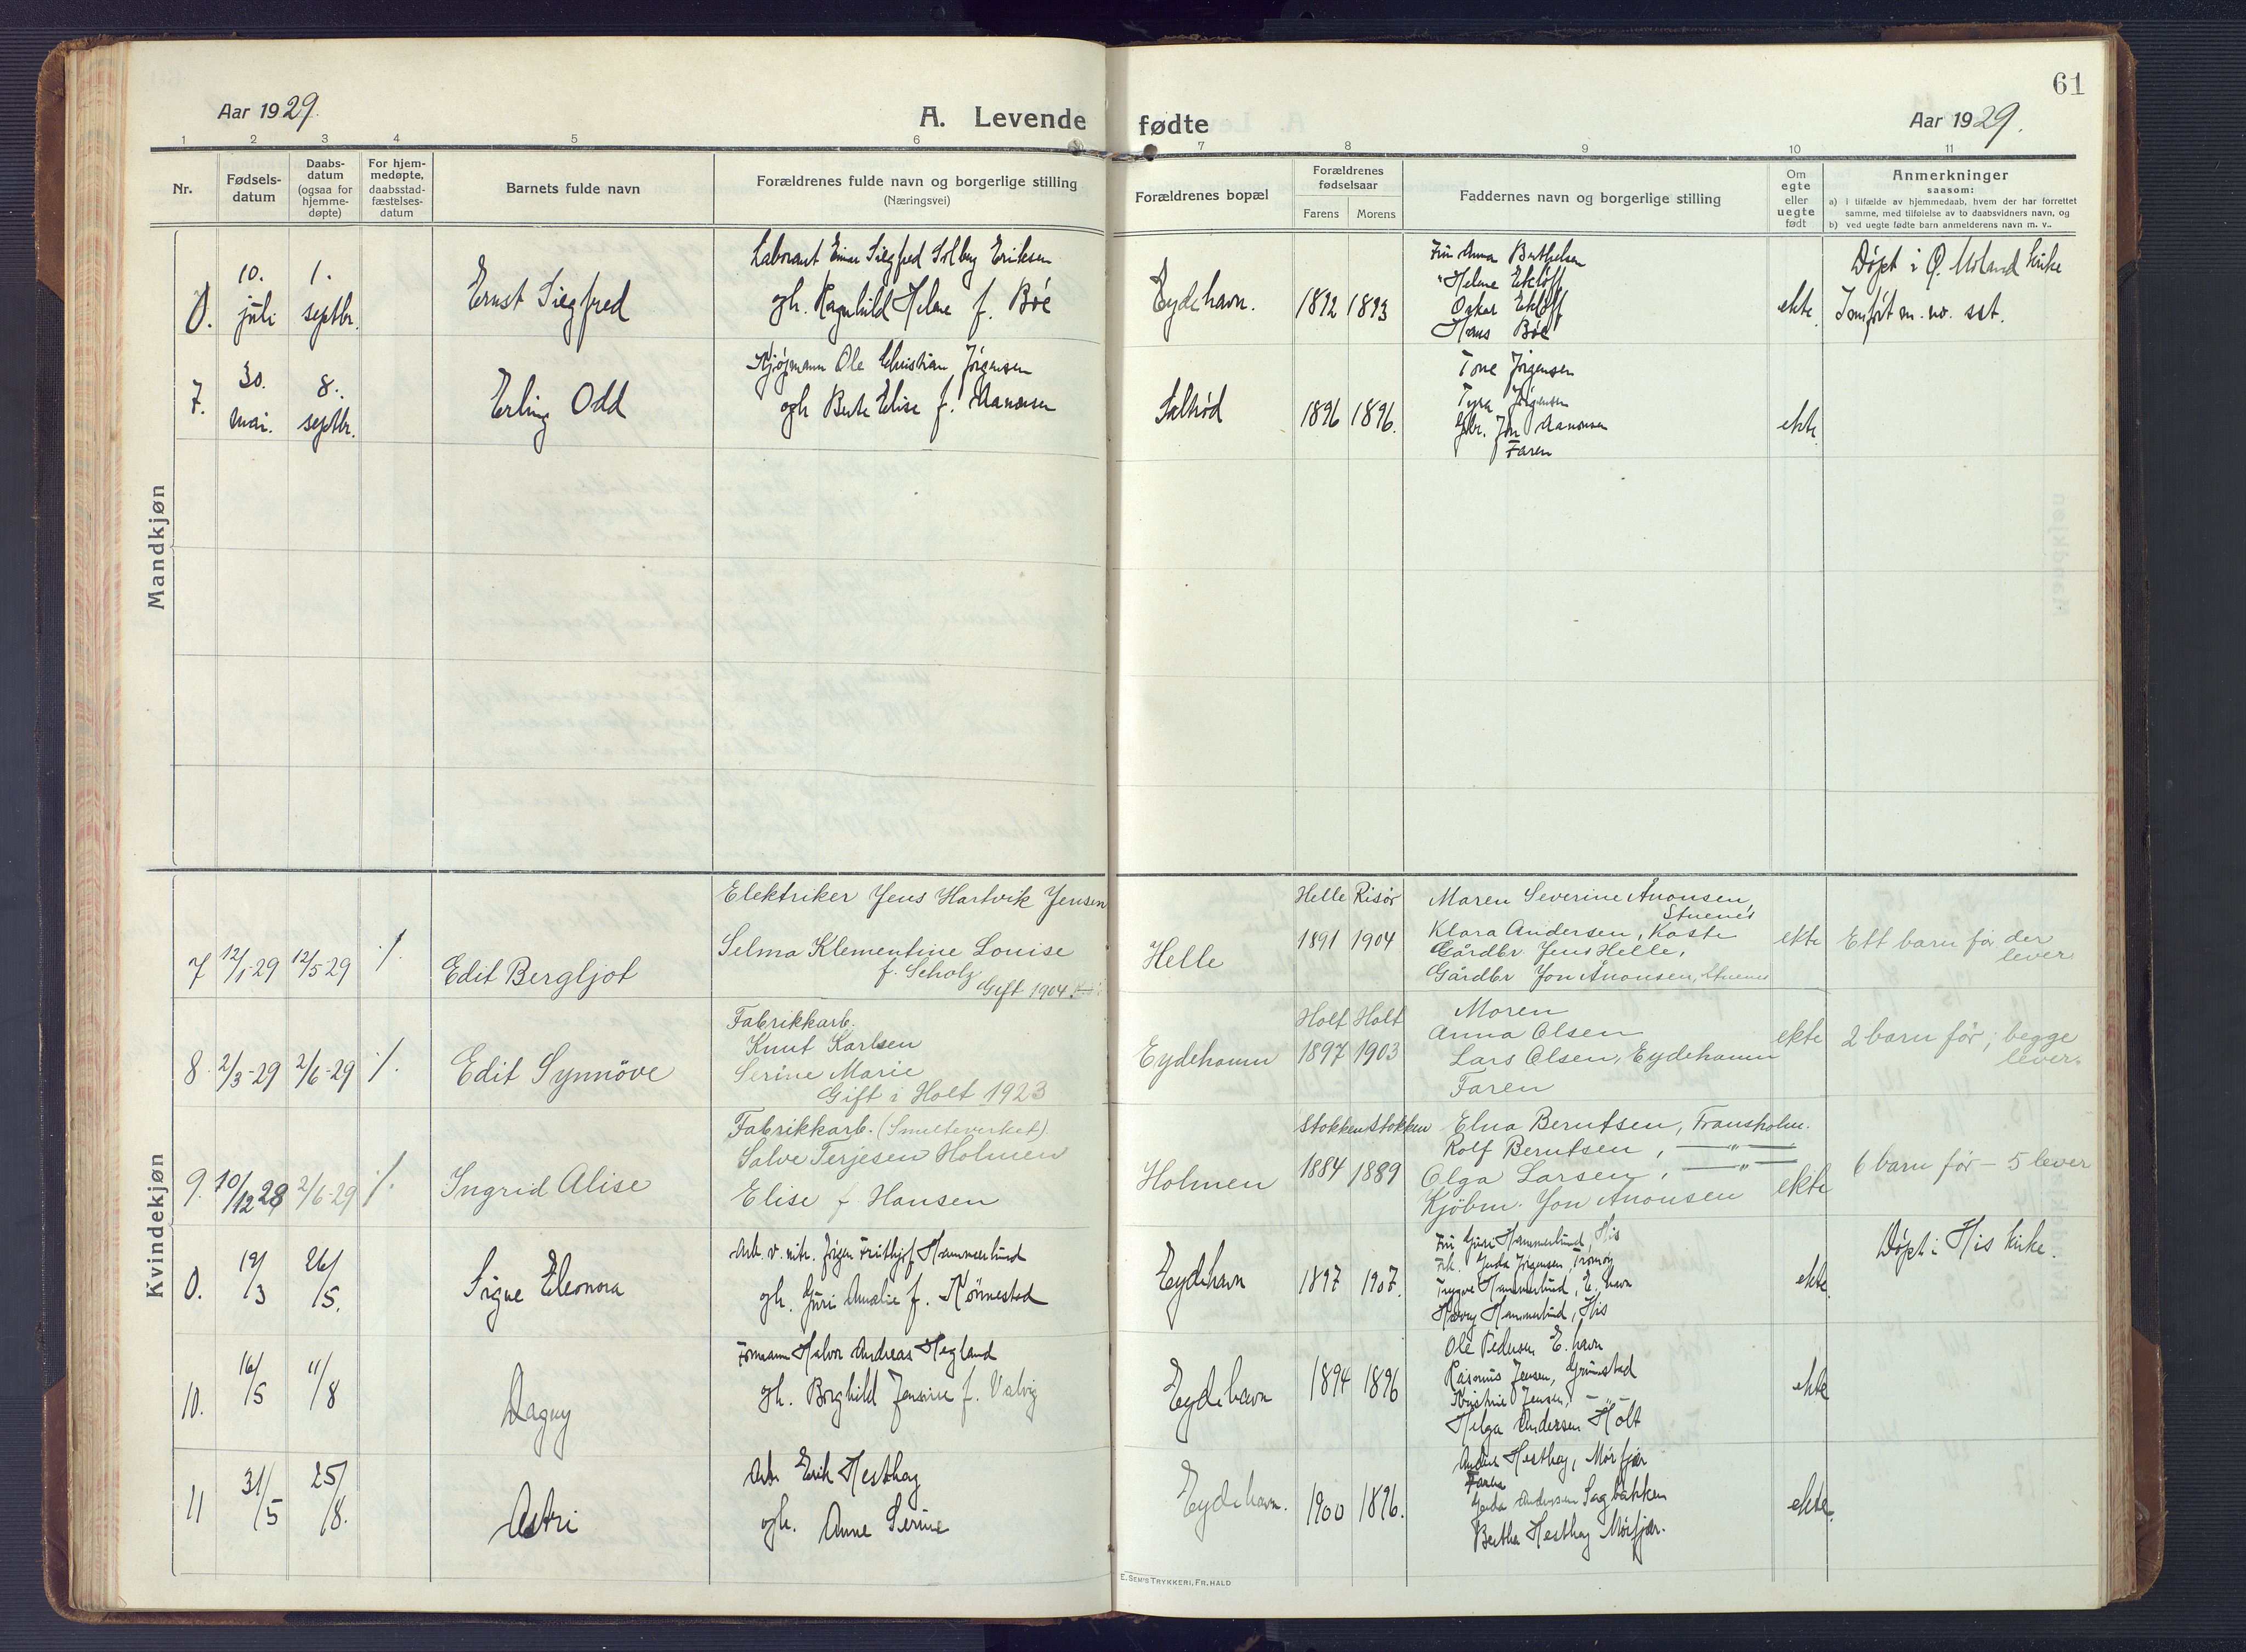 61
Aar 1929.
A. Levende fødte
Aar 1929.
1 2 3 4 5 6 7 8 9 10 11
Nr.
Fødsels-
datum
Daabs-
datum
(ogsaa for
hjemme-
døpte)
For hjem-
medøpte,
daabsstad-
fæstelses-
datum
Barnets fulde navn
Forældrenes fulde navn og borgerlige stilling
(Næringsvei)
Forældrenes bopæl
Forældrenes
fødselsaar
Farens Morens
Faddernes navn og borgerlige stilling
Om
egte
eller
uegte
født
Anmerkninger
saasom:
a) i tilfælde av hjemmedaab, hvem der har forrettet
samme, med tilføielse av to daabsvidners navn, og
b) ved uegte fødte barn anmelderens navn m. v..
Mandkjøn
0. 10. juli 1. septbr.
Ernst Siegfred
Laborant Einar Siegfred Solberg Eriksen
gh. Ragnhild Helene f. Bóe
Eydehavn. 1892 1893
Fru Anna Berthelsen
" Helene Eklöff
Oskar Eklöff
Hans Bóe
ekte
Døpt i Ø. Moland kirke
Innført m. no. sst.
7. 30. mai. 8. septbr.
Erling Odd
Kjøpmann Ole Christian Jörgensen
ogh Berte Elise f. Aanonsen
Saltrød 1896 1896.
Tone Jörgensen
Tyra Jörgensen
Gbr. Jon Aanonsen
Faren
ekte
Kvindekjøn
7 12/1-29 12/5-29 ./.
Edit Bergljot
Elektriker Jens Hartvik Jensen
Selma Klementine Louise
f. Scholz
Gift 1904
Helle
Helle Risör
1891 1904
Maren Severine Anonsen,
Stuenes
Klara Andersen, Kaste
Gårdbr Jens Helle,
Gårdbr Jon Anonsen, Stuenes
ekte
Ett barn før der
lever.
8. 2/3-29 2/6-29 ./.
Edit Synnöve
Fabrikkarb.
Knut Karlsen
Serine Marie
Gift i Holt 1923
Eydehamn
Holt Holt
1897 1903
Moren
Anna Olsen
Lars Olsen, Eydehamn
Faren
ekte
2 barn før; begge
lever.
9. 10/12 28 2/6-29 ./.
Ingrid Alise
Fabrikkarb. (Smelteverket).
Salve Terjesen Holmen
Elise f Hansen
Holmen
Stokken Stokken
1884 1889
Elna Berntsen, Fransholm.
Rolf Berntsen, — " —
Olga Larsen, — " —
Kjöbm. Jon Anonsen
ekte
6 barn før - 5 lever
0. 19/3 26/5.
Signe Eleonora
Arb. v. nitr. Jörgen Fritjof Hammerlund
gh. Guri Amalie f. Rönnestad
Eydehavn 1897 1907.
Fru Guri Hammerlund, His
Frk. Gerda Jörgensen, Tromøy
Trygve Hammerlund, E. havn
Harry Hammerlund, His
ekte.
Døpt i His kirke.
10. 16/5 11/8
Dagny
Formann Halvor Andreas Hegland
gh. Borghild Jensine f. Valvig
Eydehavn 1894 1896
Ole Pedersen E. havn
Rasmus Jensen, Grimstad
Kristine Jensen, — " —
Helga Andersen Holt
ekte
11 31/5 25/8.
Astri
Arb. Erik Hesthag
ogh. Anne Serine
Eydehavn. 1900 1896.
Anders Hesthag, Mörfjær
Faren
Gerda Andersen Sagbakken
Bertha Hesthag Mörfjær.
ekte.
E. Sem's Trykkeri, Fr.hald